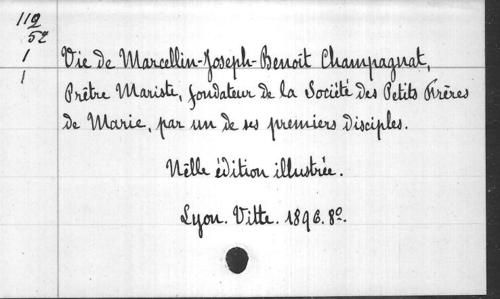 119
52
1
1
Vie de Marcellin-Joseph-Benoît Champagnat,
Prêtre Mariste, fondateur de la Société des Petits Frères
de Marie, par un de ses premiers disciples.
Nelle édition illustrée.
Lyon. Vitte. 1896. 8o.